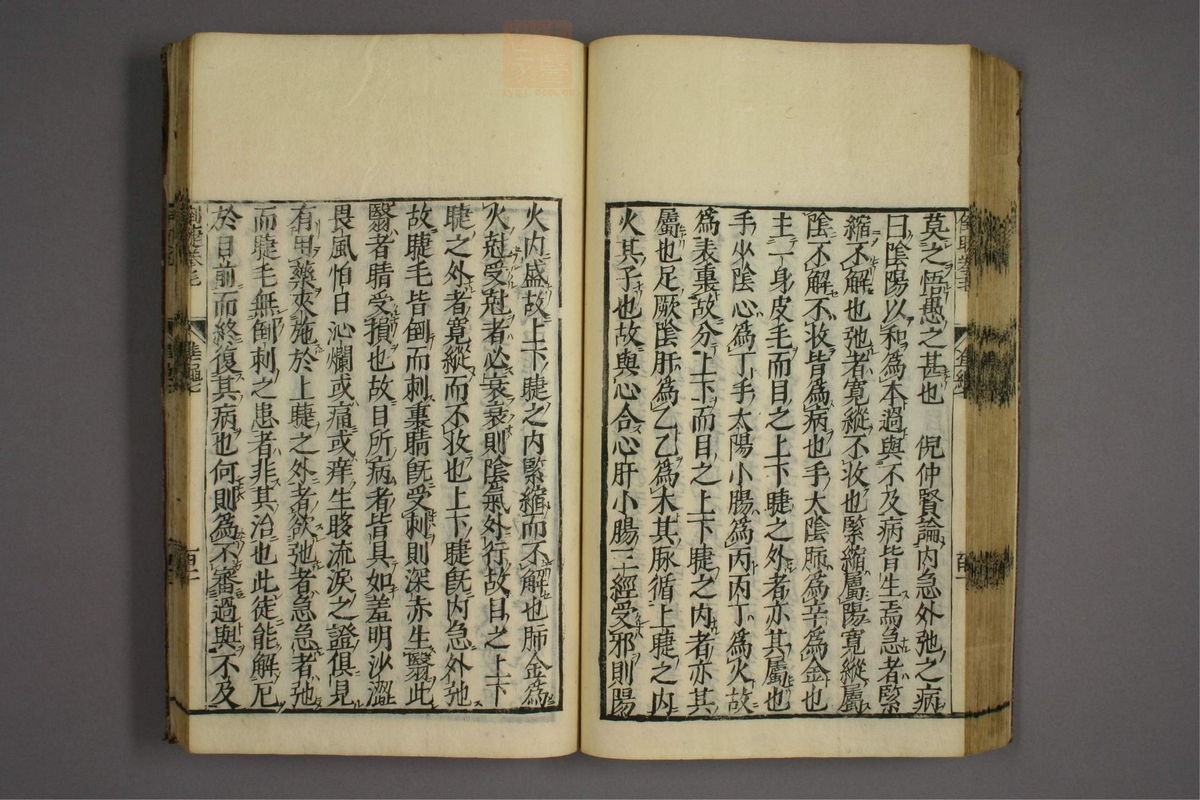 莫之悟愚之甚也　倪仲賢論内急外弛之病
曰陰陽以和為本過與不及病皆生焉急者緊
縮不解也弛者寛縱不收也緊縮屬陽寛縱屬
陰不解不收皆為病也手太陰肺為辛為金也
主一身皮毛而目之上下睫之外者亦其屬也
手少陰心為丁手太陽小腸為丙丙丁為火故
為表裏故分上下而目之上下睫之内者亦其
屬也足厥陰肝為乙乙為木其脉循上睫之内
火其子也故與心合心肝小腸三經受邪則陽
火内盛故上下睫之内緊縮而不解也肺金為
火尅受尅者必衰衰則陰氣外行故目之上下
睫之外者寛縱而不收也上下睫旣内急外弛
故睫毛皆倒而刺裏睛旣受刺則深赤生翳此
翳者睛受損也故目所病者皆具如羞明沙澀
畏風怕日沁爛或痛或痒生眵流淚之證俱見
有用藥夾施於上睫之外者欲弛者急急者弛
而睫毛無倒刺之患者非其治也此徒能解厄
於目前而終復其病也何則為不審過與不及